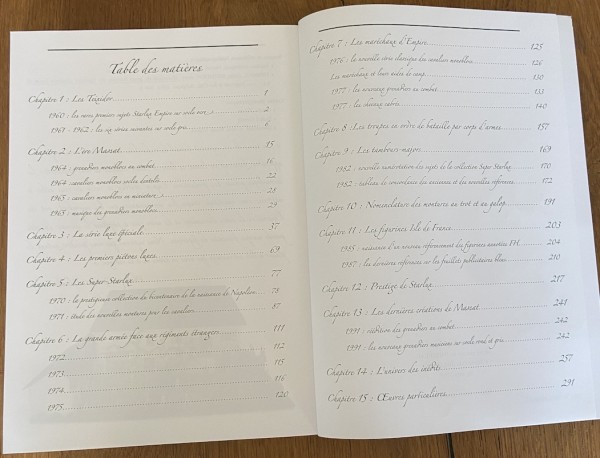 Table des matières
Chapitre 1 : Les Trigder 1
1960 : les onze premiers sujets Starlux Empire sur socle noir 2
1961 - 1962 : les six séries suivantes sur socle gris 6
Chapitre 2 : L'ère Massat 15
1964 : grenadiers monoblocs au combat 16
1964 : cavaliers monoblocs socles dentelés 22
1965 : cavaliers monoblocs en miniature 28
1965 : musique des grenadiers monoblocs 29
Chapitre 3 : La série luxe spéciale 37
Chapitre 4 : Les premiers piétons luxes 69
Chapitre 5 : Les Super-Starlux 77
1970 : la prestigieuse collection du bicentenaire de la naissance de Napoléon 78
1971 : étude des nouvelles montures pour les cavaliers 87
Chapitre 6 : La grande armée face aux régiments étrangers 111
1972 112
1973 115
1974 116
1975 120
Chapitre 7 : Les maréchaux d'Empire 125
1976 : la nouvelle série classique des cavaliers monoblocs 126
Les maréchaux et leurs aides de camp 130
1977 : les nouveaux grenadiers au combat 133
1977 : les chevaux cabrés 140
Chapitre 8 : Les troupes en ordre de bataille par corps d'armée 157
Chapitre 9 : Les tambours-majors 169
1982 : nouvelle numérotation des sujets de la collection Super Starlux 170
1982 : tableau de concordance des anciennes et des nouvelles références 172
Chapitre 10 : Nomenclature des montures au trot et au galop 191
Chapitre 11 : Les figurines Ile de France 203
1985 : naissance d'un nouveau référencement des figurines montées FH 204
1987 : les dernières références sur les feuillets publicitaires bleus 210
Chapitre 12 : Prestige de Starlux 217
Chapitre 13 : Les dernières créations de Massat 241
1991 : réédition des grenadiers au combat 242
1991 : les nouveaux grenadiers musiciens sur socle rond et gris 242
Chapitre 14 : L'univers des inédits 257
Chapitre 15 : Œuvres particulières 291